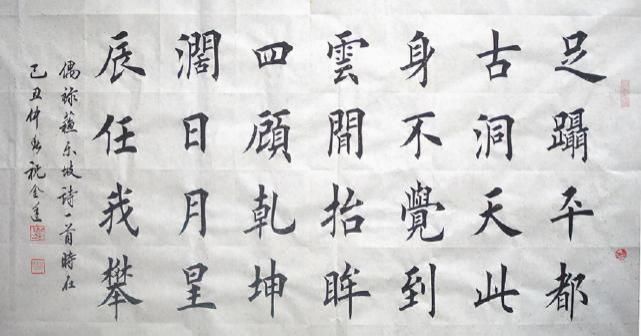 足躡平都
古洞天此
身不覺到
雲間抬眸
四顧乾坤
濶日月星
辰任我攀
偶錄蘇东坡詩一首時在
己丑仲春祝金